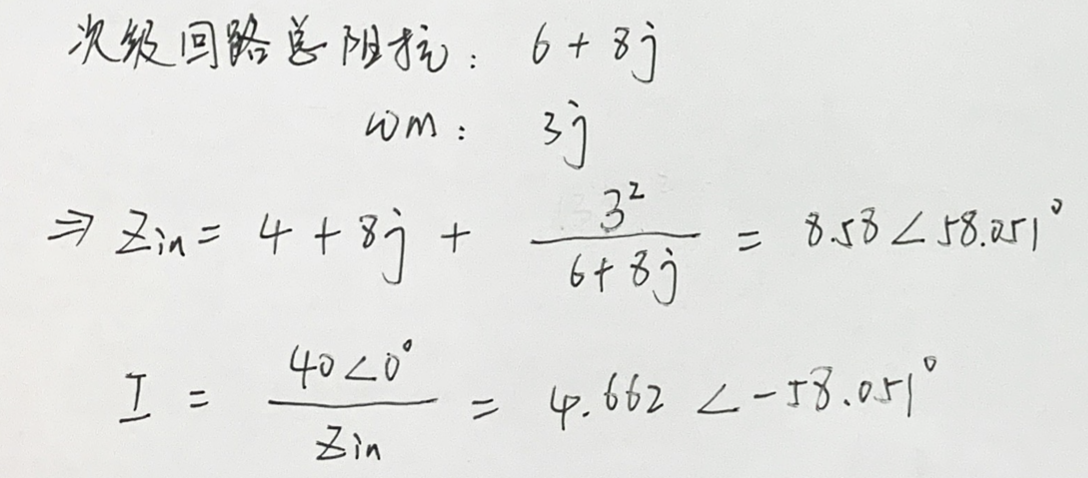 次级回路总阻抗: 6 + 8j
ωm: 3j
⇒ Zin = 4 + 8j + 3² / (6 + 8j) = 8.58 ∠ 58.051°
I = 40∠0° / Zin = 4.662 ∠ -58.051°